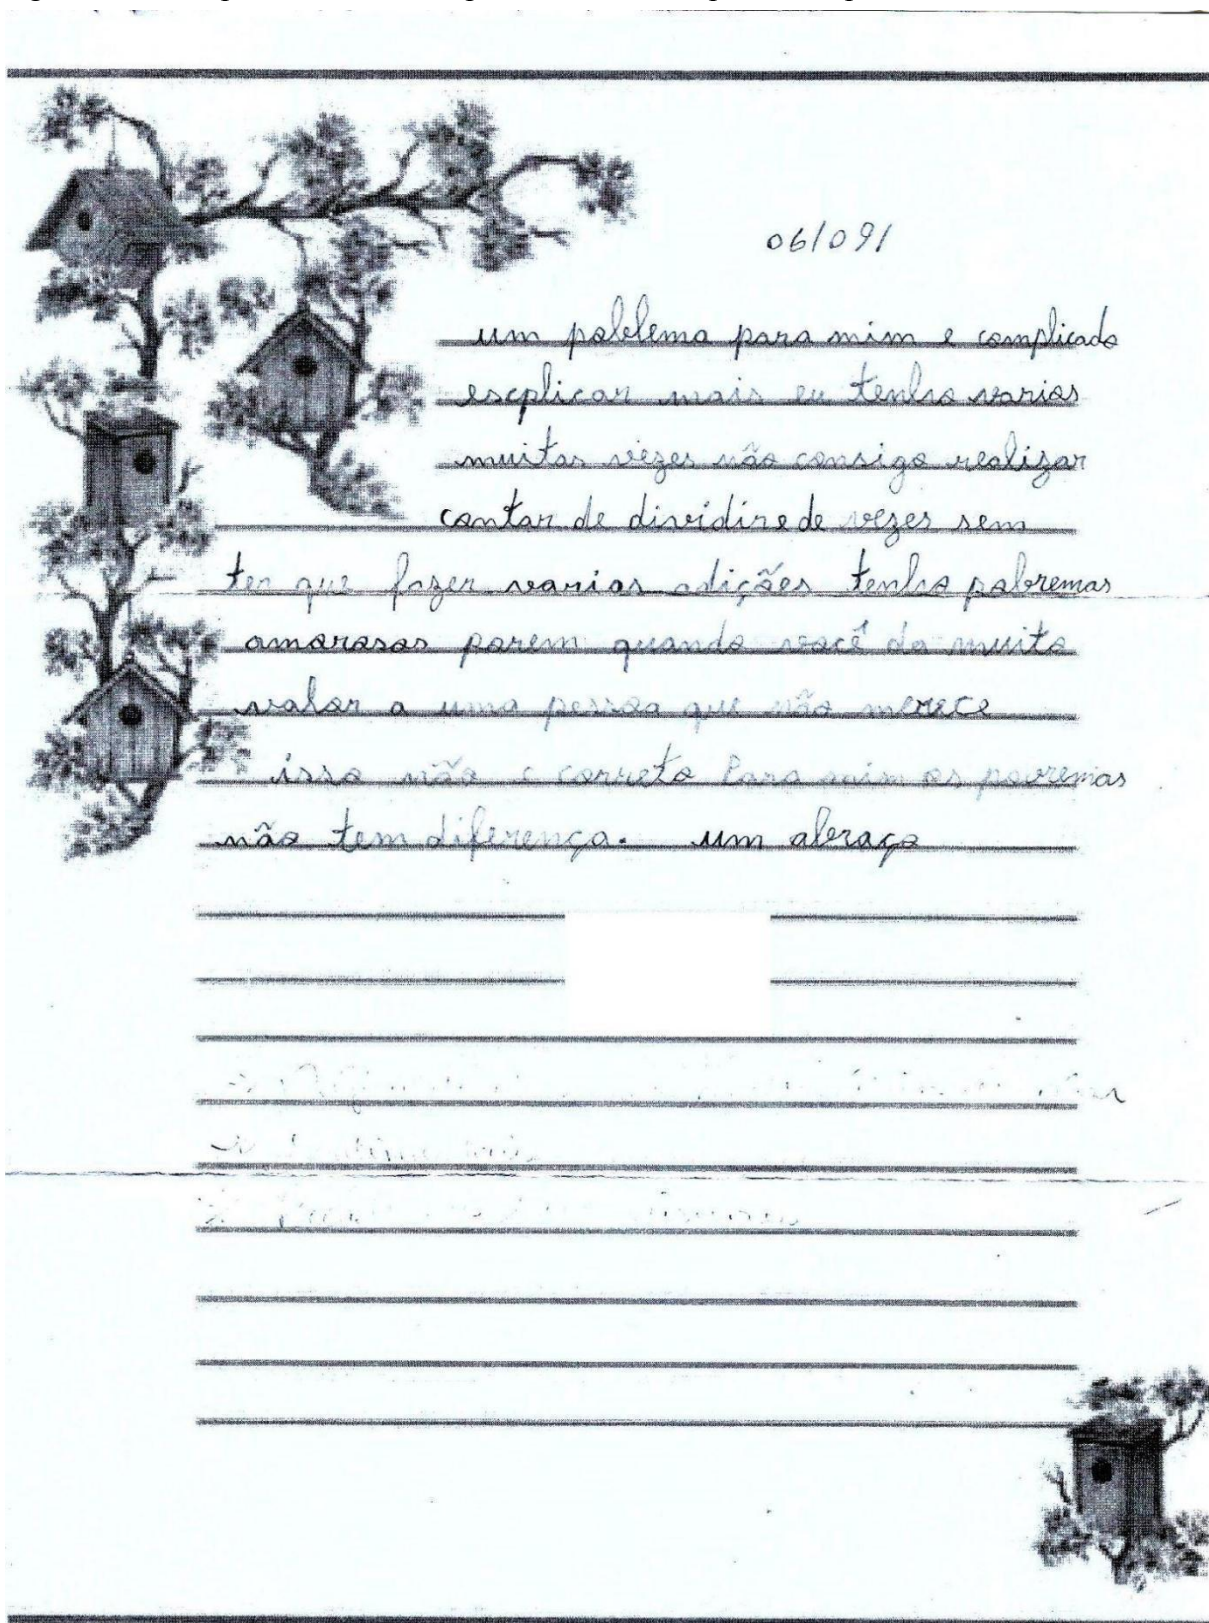 06/09/
um poblema para mim e complicado
escplicar mais eu tenho varios
muitas vezes não consigo realizar
contar de dividir e de vezes sem
ter que fazer varias adições tenho pobremas
amorosos porem quando você da muito
valor a uma pessoa que não merece
isso não e correto Para mim os povremas
não tem diferença. um abraço